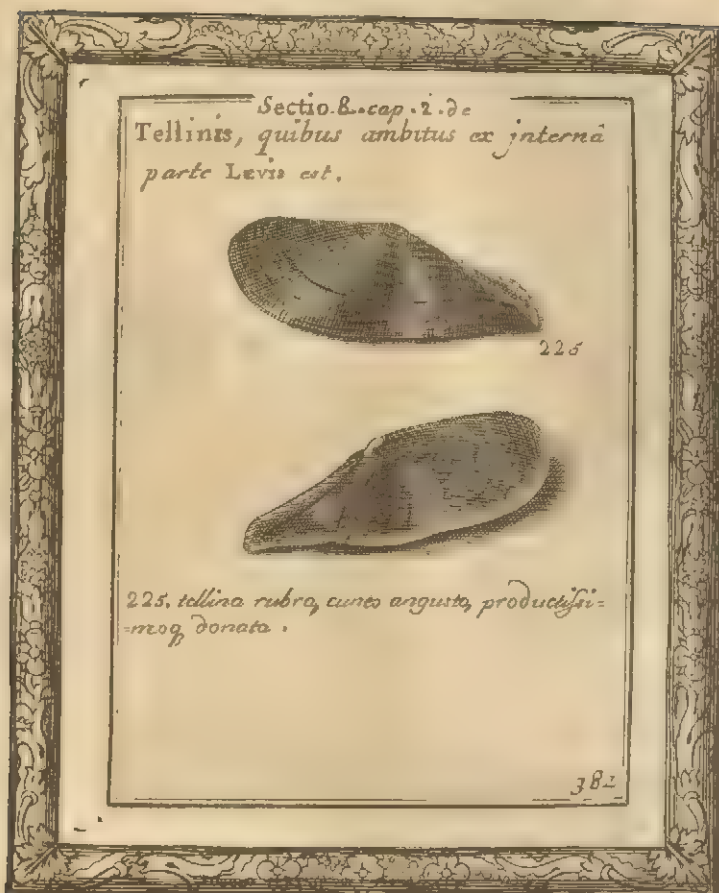 Sectio. 8. cap. 2. de
Tellinis, quibus ambitus ex internâ
parte Lævis est.
225
225. tellina rubra, cuneo angusto, productissi=
=moq, donata.
382